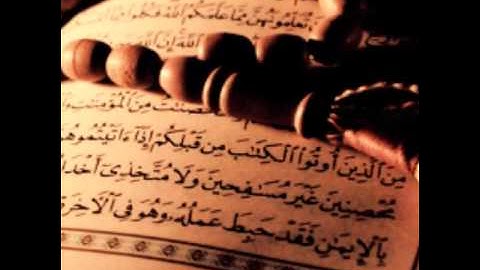 تُعَلِّمُونَهُنَّ مِمَّا عَلَّمَكُمُ ٱللَّهُ فَكُلُوا۟ مِمَّآ
ٱللَّهَ إِنَّ ٱللَّهَ
مِنَ ٱلْمُؤْمِنَٰتِ
مِنَ ٱلَّذِينَ أُوتُوا۟ ٱلْكِتَٰبَ مِن قَبْلِكُمْ إِذَآ ءَاتَيْتُمُوهُنَّ
مُحْصِنِينَ غَيْرَ مُسَٰفِحِينَ وَلَا مُتَّخِذِىٓ أَخْدَا
بِٱلْإِيمَٰنِ فَقَدْ حَبِطَ عَمَلُهُۥ وَهُوَ فِى ٱلْءَاخِرَ